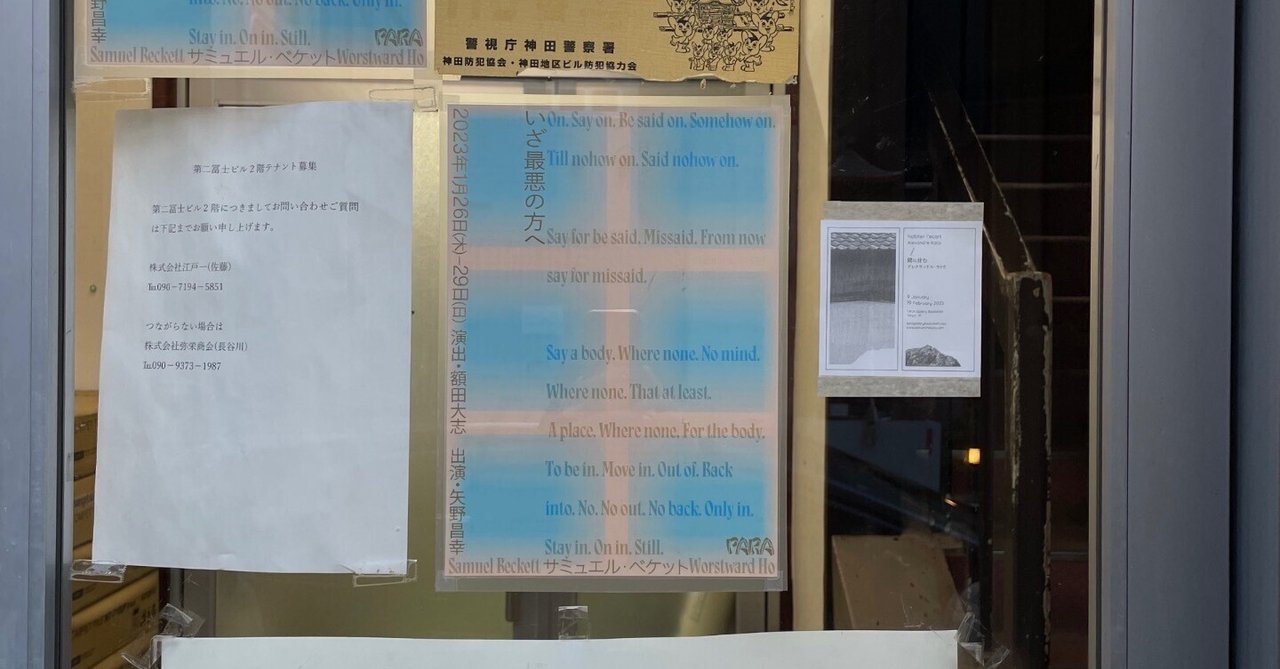 野昌幸
into. No. No out. No back. Only in.
Stay in. On in. Still.
PARA
Samuel Beckett サミュエル・ベケット Worstward Ho
警視庁神田警察署
神田防犯協会・神田地区ビル防犯協力会
第二冨士ビル2階テナント募集
第二冨士ビル2階につきましてお問い合わせご質問
は下記までお願い申し上げます。
株式会社江戸一(佐藤)
℡096-7194-5851
つながらない場合は
株式会社弥栄商会(長谷川)
℡090-9373-1987
いざ最悪の方へ
2023年1月26日(木)-29日(日) 演出・額田大志 出演・矢野昌幸
On. Say on. Be said on. Somehow on.
Till nohow on. Said nohow on.
Say for be said. Missaid. From now
say for missaid.
Say a body. Where none. No mind.
Where none. That at least.
A place. Where none. For the body.
To be in. Move in. Out of. Back
into. No. No out. No back. Only in.
Stay in. On in. Still.
PARA
Samuel Beckett サミュエル・ベケット Worstward Ho